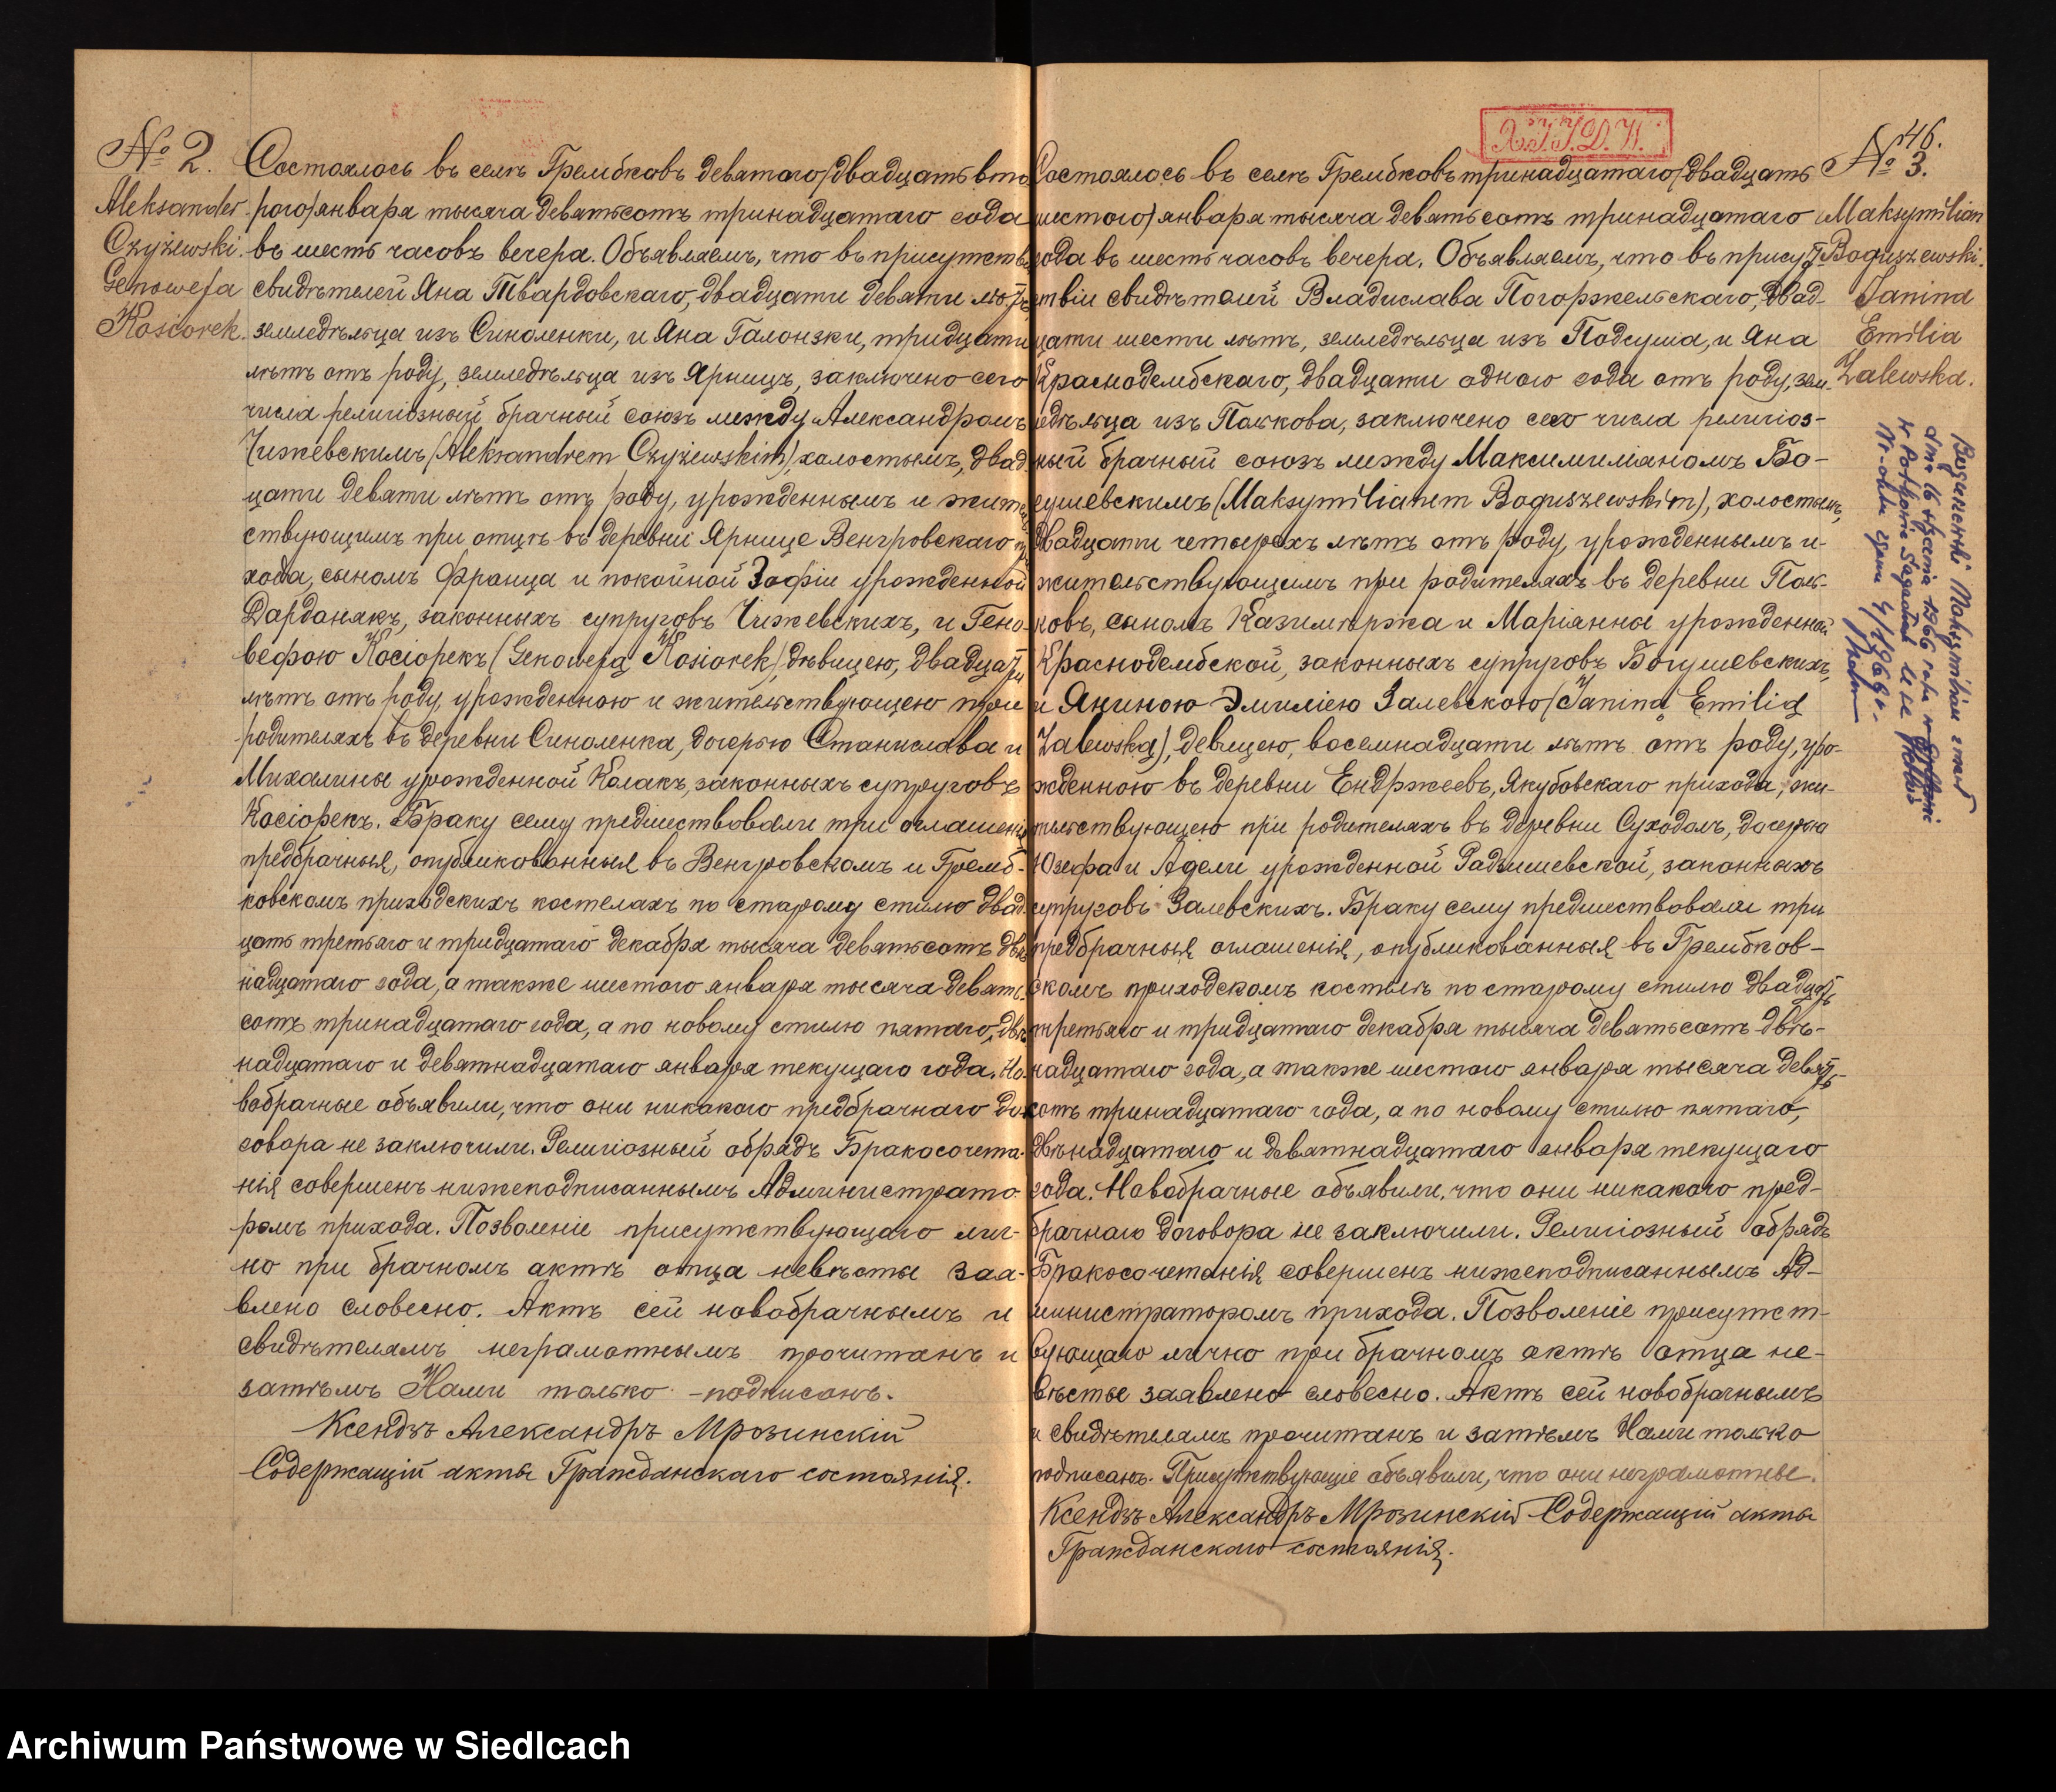 № 2.
Aleksander
Czyżewski.
Genowefa
Kosiorek.
Состоялось въ селѣ Грембковѣ девятаго/двадцать вто-
рого/января тысяча девятьсотъ тринадцатаго года
въ шесть часовъ вечера. Объявляемъ, что въ присутствіи
свидѣтелей Яна Твардовскаго, двадцати девяти лѣтъ,
земледѣльца изъ Синоленки, и Яна Галонзки, тридцати
лѣтъ отъ роду, земледѣльца изъ Ярницъ, заключено сего
числа религіозный брачный союзъ между Александромъ
Чижевскимъ (Aleksandrem Czyżewskim), холостымъ, двад-
цати девяти лѣтъ отъ роду, урожденнымъ и житель-
ствующимъ при отцѣ въ деревни Ярнице Венгровскаго при-
хода, сыномъ Франца и покойной Зофіи урожденной
Дарданякъ, законныхъ супруговъ Чижевскихъ, и Гено-
вефою Косіорекъ (Genowefą Kosiorek), дѣвицею, двадцати
лѣтъ отъ роду, урожденною и жительствующею при
родителяхъ въ деревни Синоленка, дочерью Станислава и
Михалины урожденной Колакъ, законныхъ супруговъ
Косіорекъ. Браку сему предшествовали три оглашенія
предбрачныя, опубликованныя въ Венгровскомъ и Гремб-
ковскомъ приходскихъ костелахъ по старому стилю двад-
цать третьяго и тридцатаго декабря тысяча девятьсотъ двѣ-
надцатаго года, а также шестого января тысяча девять-
сотъ тринадцатаго года, а по новому стилю пятаго, двѣ-
надцатаго и девятнадцатаго января текущаго года. Но-
вобрачные объявили, что они никакого предбрачнаго до-
говора не заключили. Религіозный обрядъ Бракосочета-
нія совершенъ нижеподписаннымъ Администрато-
ромъ прихода. Позволеніе присутствующаго лич-
но при брачномъ актѣ отца невѣсты зая-
влено словесно. Актъ сей новобрачнымъ и
свидѣтелямъ неграмотнымъ прочитанъ и
затѣмъ Нами только подписанъ.
Ксендзъ Александръ Мрозинскій
Содержащій акты Гражданскаго состоянія.
46.
№ 3.
Maksymilian
Boguszewski.
Janina
Emilia
Zalewska.
Состоялось въ селѣ Грембковѣ тринадцатаго/двадцать
шестого/января тысяча девятьсотъ тринадцатаго
года въ шесть часовъ вечера. Объявляемъ, что въ присут-
ствіи свидѣтелей Владислава Погоржельскаго, двад-
цати шести лѣтъ, земледѣльца изъ Подсуша, и Яна
Краснодембскаго, двадцати одного года отъ роду, зем-
ледѣльца изъ Полкова, заключено сего числа религіоз-
ный брачный союзъ между Максимиліаномъ Бо-
гушевскимъ (Maksymilianem Boguszewskim), холостымъ,
двадцати четырехъ лѣтъ отъ роду, урожденнымъ и
жительствующимъ при родителяхъ въ деревни Пол-
ковъ, сыномъ Казимѣржа и Маріанны урожденной
Краснодембской, законныхъ супруговъ Богушевскихъ,
и Яниною Эмиліею Залевскою (Janiną Emilią
Zalewską), девицею, восемнадцати лѣтъ отъ роду, уро-
жденною въ деревни Ендржеевъ, Якубовскаго прихода, жи-
тельствующею при родителяхъ въ деревни Суходолъ, дочерью
Юзефа и Адели урожденной Радзишевской, законныхъ
супруговъ Залевскихъ. Браку сему предшествовали три
предбрачныя оглашенія, опубликованныя въ Грембков-
скомъ приходскомъ костелѣ по старому стилю двадцать
третьяго и тридцатаго декабря тысяча девятьсотъ двѣ-
надцатаго года, а также шестого января тысяча девять-
сотъ тринадцатаго года, а по новому стилю пятаго,
двѣнадцатаго и девятнадцатаго января текущаго
года. Новобрачные объявили, что они никакого пред-
брачнаго договора не заключили. Религіозный обрядъ
Бракосочетанія совершенъ нижеподписаннымъ Ад-
министраторомъ прихода. Позволеніе присутст-
вующаго лично при брачномъ актѣ отца не-
вѣсты заявлено словесно. Актъ сей новобрачнымъ
и свидѣтелямъ прочитанъ и затѣмъ Нами только
подписанъ. Присутствующіе объявили, что они неграмотные.
Ксендзъ Александръ Мрозинскій Содержащій акты
Гражданскаго состоянія.
Boguszewski Maksymilian zmarł
dnia 16 stycznia 1966 roku w
Nr aktu zgonu 4/1966 r.
Archiwum Państwowe w Siedlcach